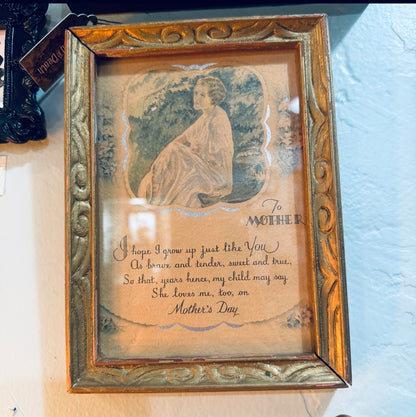 To
MOTHER
I hope I grow up just like You
As brave and tender, sweet and true,
So that, years hence, my child may say
She loves me, too, on
Mother's Day